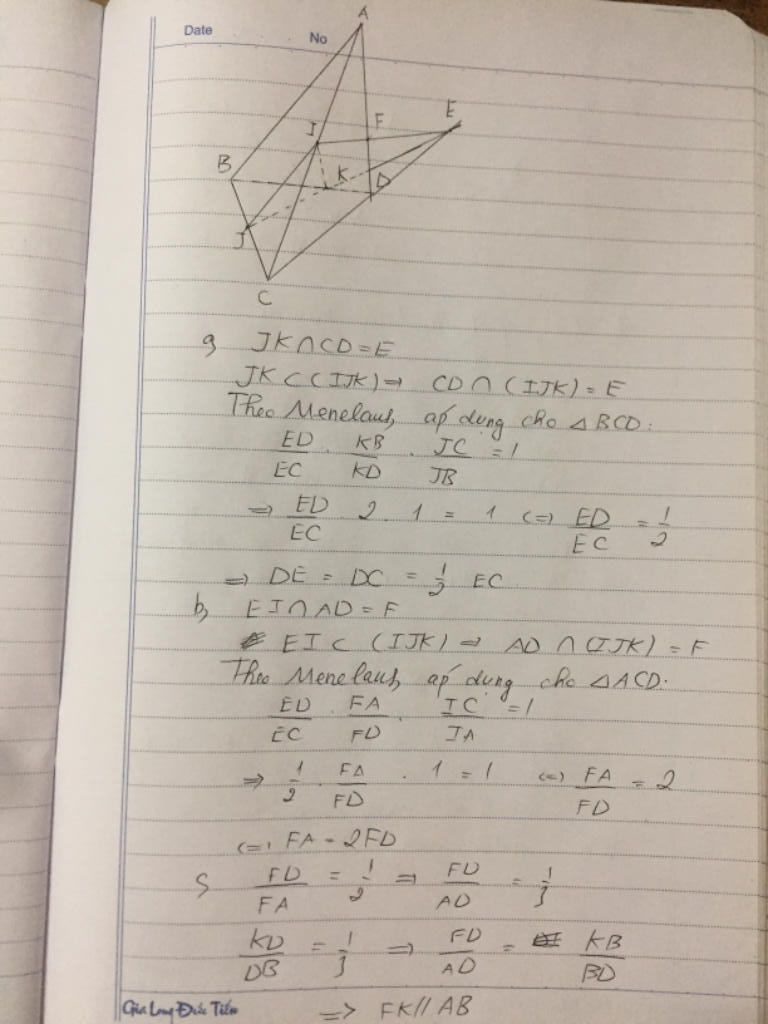 Date
No
A
E
F
I
B
K
D
J
C
a, JK∩CD=E
JK⊂(IJK)⇒ CD∩(IJK)=E
Theo Menelaus, áp dụng cho △BCD:
ED/EC . KB/KD . JC/JB = 1
⇒ ED/EC 2 . 1 = 1 (=) ED/EC = 1/2
⇒ DE = DC = 1/2 EC
b, EI∩AD=F
EI⊂(IJK) ⇒ AD∩(IJK)=F
Theo Menelaus, áp dụng cho △ACD:
ED/EC . FA/FD . IC/IA = 1
⇒ 1/2 . FA/FD . 1 = 1 (=) FA/FD = 2
(=) FA = 2FD
c, FD/FA = 1/2 ⇒ FD/AD = 1/3
KD/DB = 1/3 ⇒ FD/AD = KB/BD
⇒ FK // AB
Gia Long Đức Tiến